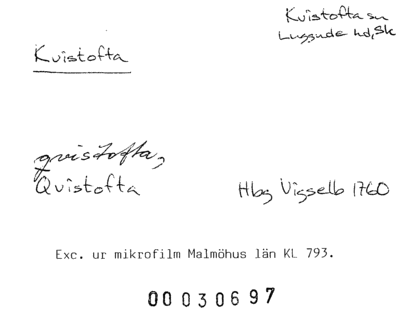 Kvistofta sn
Luggude hd, Sk
Kvistofta
qvistofta,
Qvistofta
Hbg Vigselb 1760
Exc. ur mikrofilm Malmöhus län KL 793.
00 030697